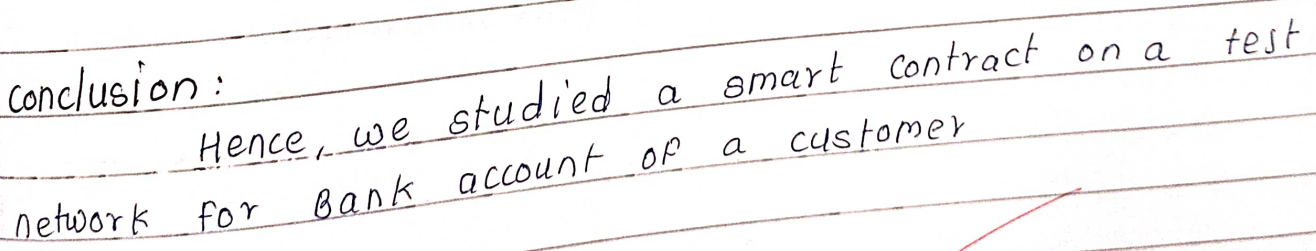 conclusion:
Hence, we studied a smart contract on a test
network for Bank account of a customer